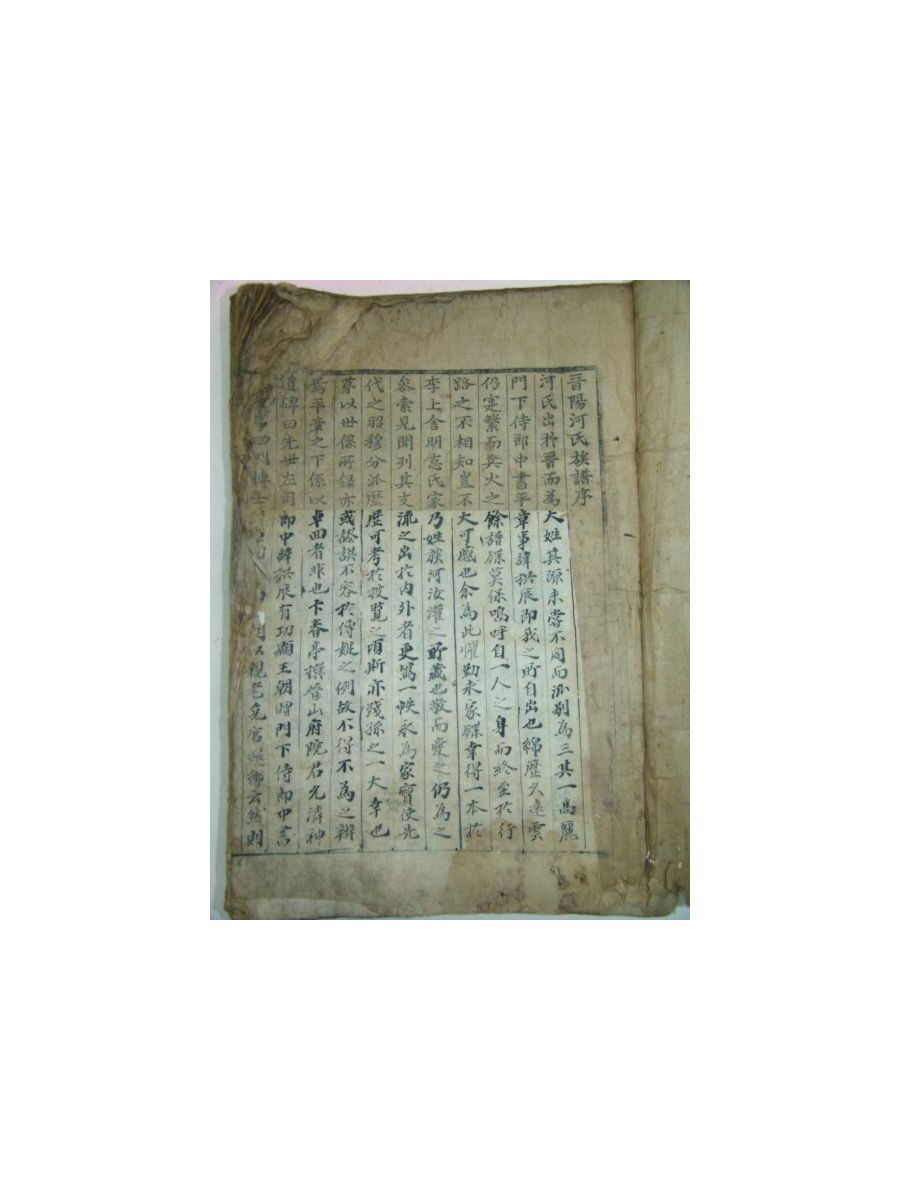 晋陽河氏族譜序
河氏出於晋而為大姓其源未嘗不同而派別為三其一高麗
門下侍郎中書平章事諱拱辰即我之所自出也綿歷久遠雲
仍寔繁而兵火之餘譜牒莫保嗚呼自一人之身而終至於行
路之不相知豈不大可慼也余為此懼勤求家牒幸得一本於
李上舍明惪氏家乃姓族河汝灌之所藏也敬而愛之仍為之
叅索見聞列其支流之出於內外者更寫一帙永為家寶使先
代之昭穆分派歷歷可考於披覽之頃斯亦殘孫之一大幸也
茅以世係所錄亦或謬誤不容於傳疑之例故不得不為之辨
焉平章之下係以卓回者非也卞春亭撰晉山府院君先濟神
道碑曰先世左司郎中諱拱辰有功顯王朝贈門下侍郎中書
第四 以親老免官 鄉云然則